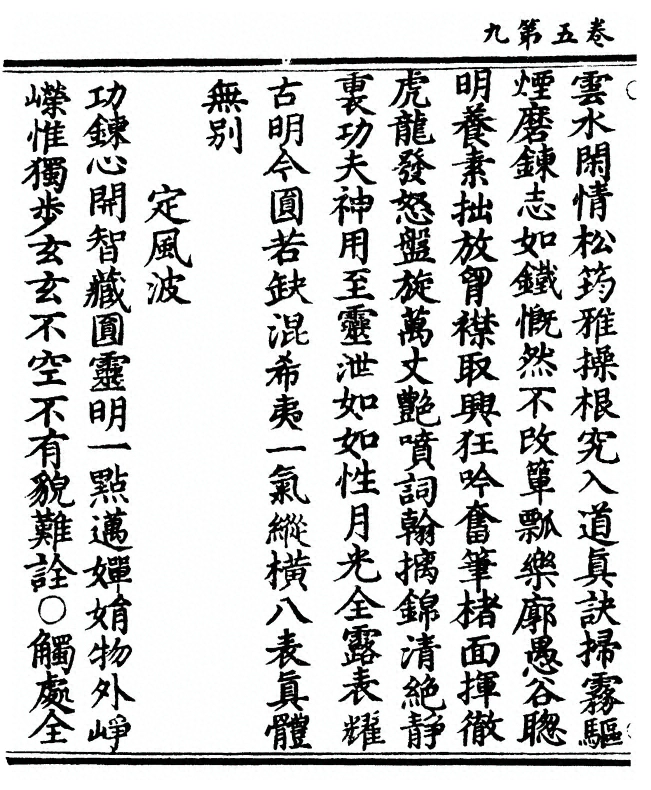 卷五第九
雲水閑情松筠雅操根究入道眞訣掃霧驅
煙磨鍊志如鐵慨然不改簞瓢樂廓愚谷聰
明養素拙放胷襟取興狂吟奮筆楮面揮徹
虎龍發怒盤旋萬丈艷噴詞翰摛錦清絶靜
裏功夫神用至靈泄如如性月光全露表耀
古明今圓若缺混希夷一氣縱橫八表眞體
無别
定風波
功鍊心開智藏圓靈明一點邁嬋娟物外崢
嶸惟獨步玄玄不空不有貌難詮○觸處全